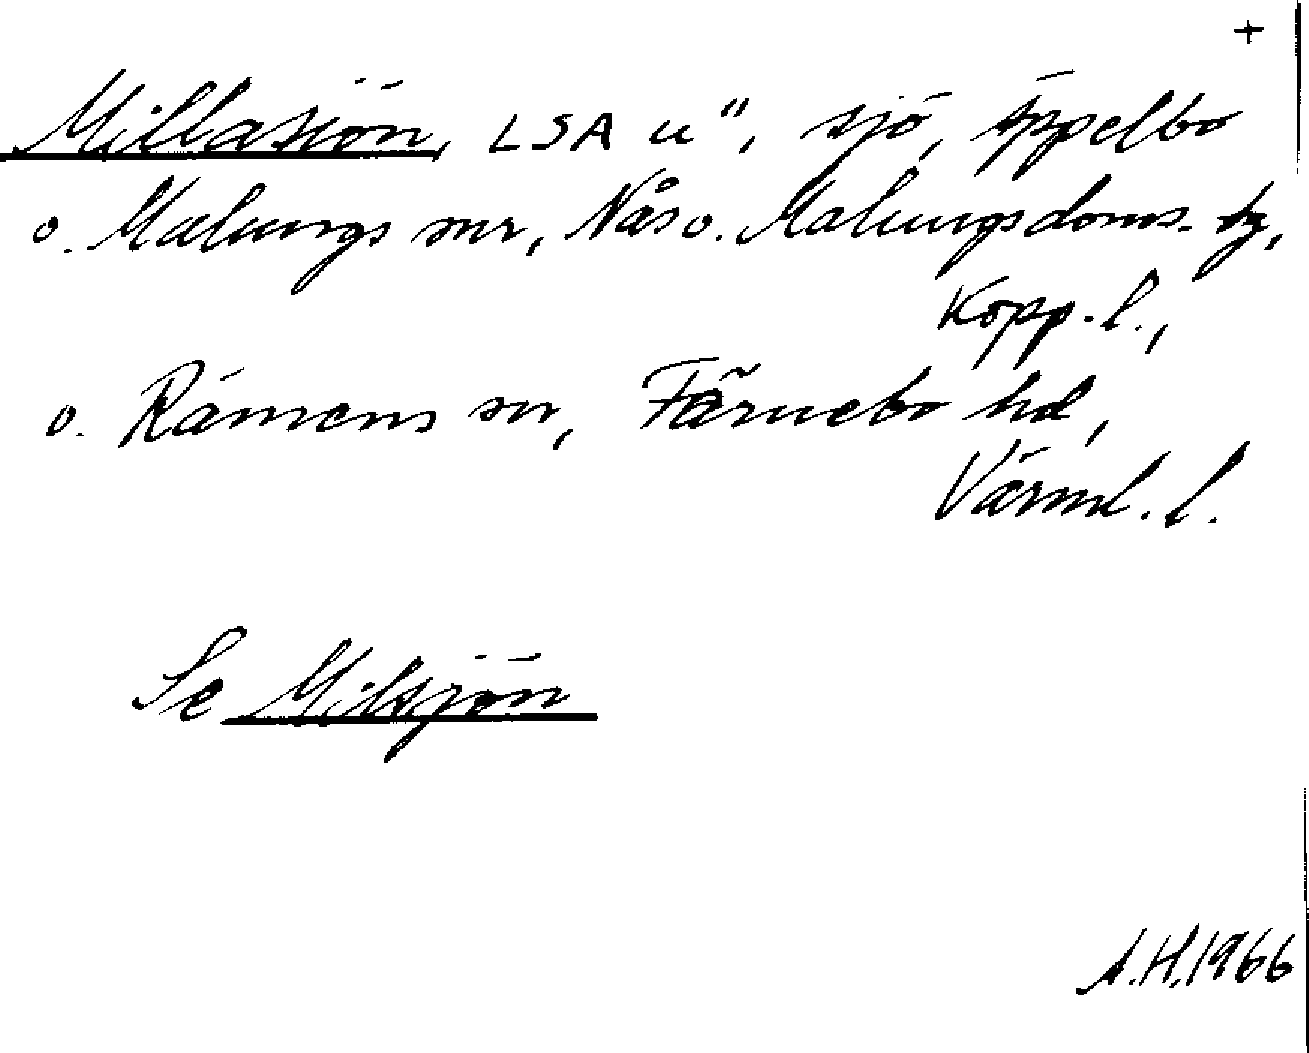 +
Millasjön, LSA u", sjö, Äppelbo
o. Malungs snr, Nås o. Malungs doms. tg,
Kopp. l.,
o. Rämens sn, Färnebo hd,
Värml. l.
Se Milsjön
A.H. 1966